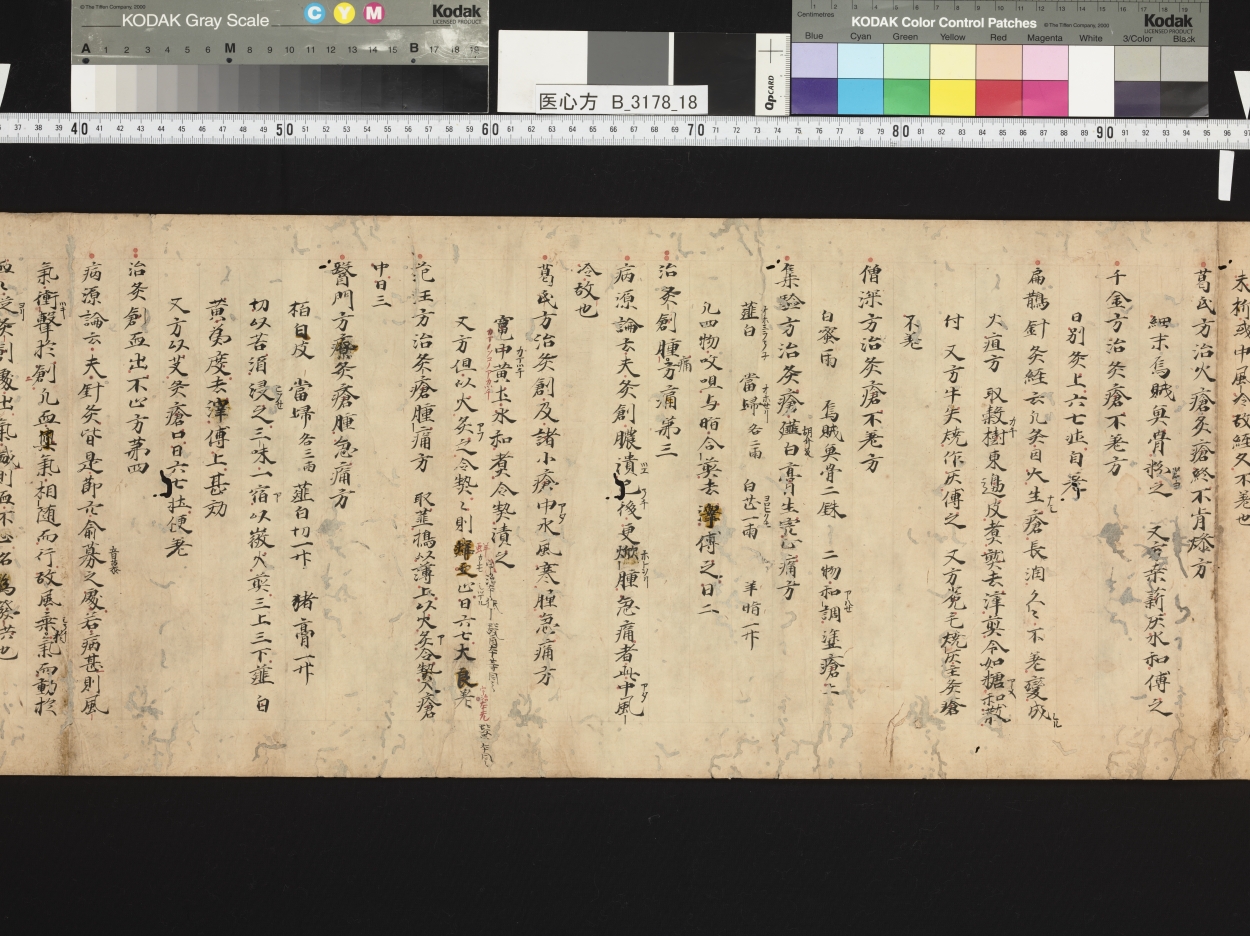 © The Tiffen Company, 2000
KODAK Gray Scale
C Y M
Kodak
LICENSED PRODUCT
A 1 2 3 4 5 6 M 8 9 10 11 12 13 14 15 B 17 18 19
医心方 B_3178_18
QPCARD
Centimetres
KODAK Color Control Patches
© The Tiffen Company, 2000
Kodak
LICENSED PRODUCT
Blue Cyan Green Yellow Red Magenta White 3/Color Black
37 38 39 40 41 42 43 44 45 46 47 48 49 50 51 52 53 54 55 56 57 58 59 60 61 62 63 64 65 66 67 68 69 70 71 72 73 74 75 76 77 78 79 80 81 82 83 84 85 86 87 88 89 90 91 92 93 94 95 96 97
未折或中風冷故経久不差也
葛氏方治火瘡灸瘡終不肯燥方
細末烏賊魚骨粉之 又方柔薪灰水和傅之
千金方治灸瘡不差方
日別灸上六七壮自差
扁鵲針灸経云凡灸因火生瘡長潤久々不差変成
火疽方 取穀樹東邊皮煮熟去滓煎令如糖和散
付 又方牛矢焼作灰傅之 又方兎毛焼灰塗灸瘡
不差
僧深方治灸瘡不差方
白蜜一両 烏賊魚骨二銖 二物和調塗瘡上
集驗方治灸瘡薤白膏生完止痛方
薤白 當歸各二両 白芷一両 羊脂一斤
凡四物㕮咀与脂合煎去滓傅之日二
治灸創腫痛方第三
病源論云夫灸創膿潰已後更焮腫急痛者此中風
冷故也
葛氏方治灸創及諸小瘡中水風寒腫急痛方
竃中黄土水和煮令熱漬之
又方但以火灸之令熱々則 止日六七大良
范汪方治灸瘡腫痛方 取薤搗以薄上以火灸令熱入瘡
中日三
醫門方療灸瘡腫急痛方
栢白皮 當歸各三両 薤白切一升 猪膏一升
切以苦酒浸之三味一宿以微火煎三上三下薤白
黄為度去滓傅上甚効
又方以艾灸瘡口日六七壮便差
治灸創血出不止方第四
病源論云夫針灸皆是節穴俞募之處若病甚則風
氣衝擊於創凡血与氣相随而行故風乘氣而動於
血々従灸創處出氣盛則血不止名為發洪也